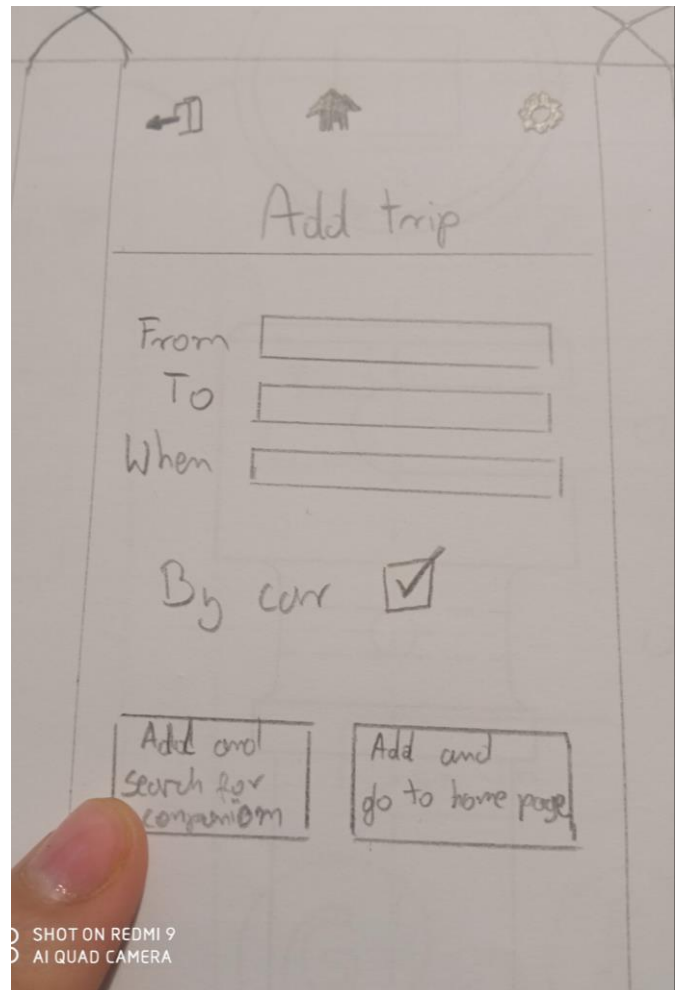 Add trip
From
To
When
By car
Add and
search for
companion
Add and
go to home page
SHOT ON REDMI 9
AI QUAD CAMERA